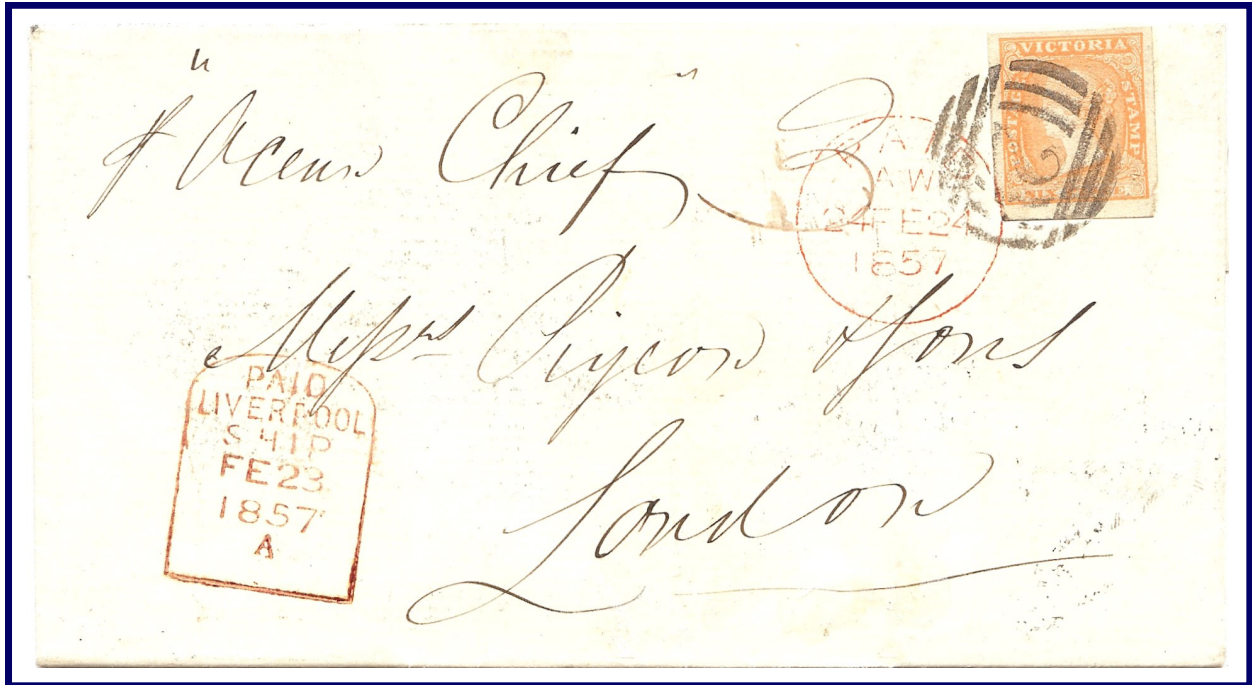 VICTORIA
POSTAGE
STAMP
"
"
℘ Ocean Chief
A W
24 FE 24
1857
Messrs Pigeon & Sons
London
PAID
LIVERPOOL
SHIP
FE 23
1857
A